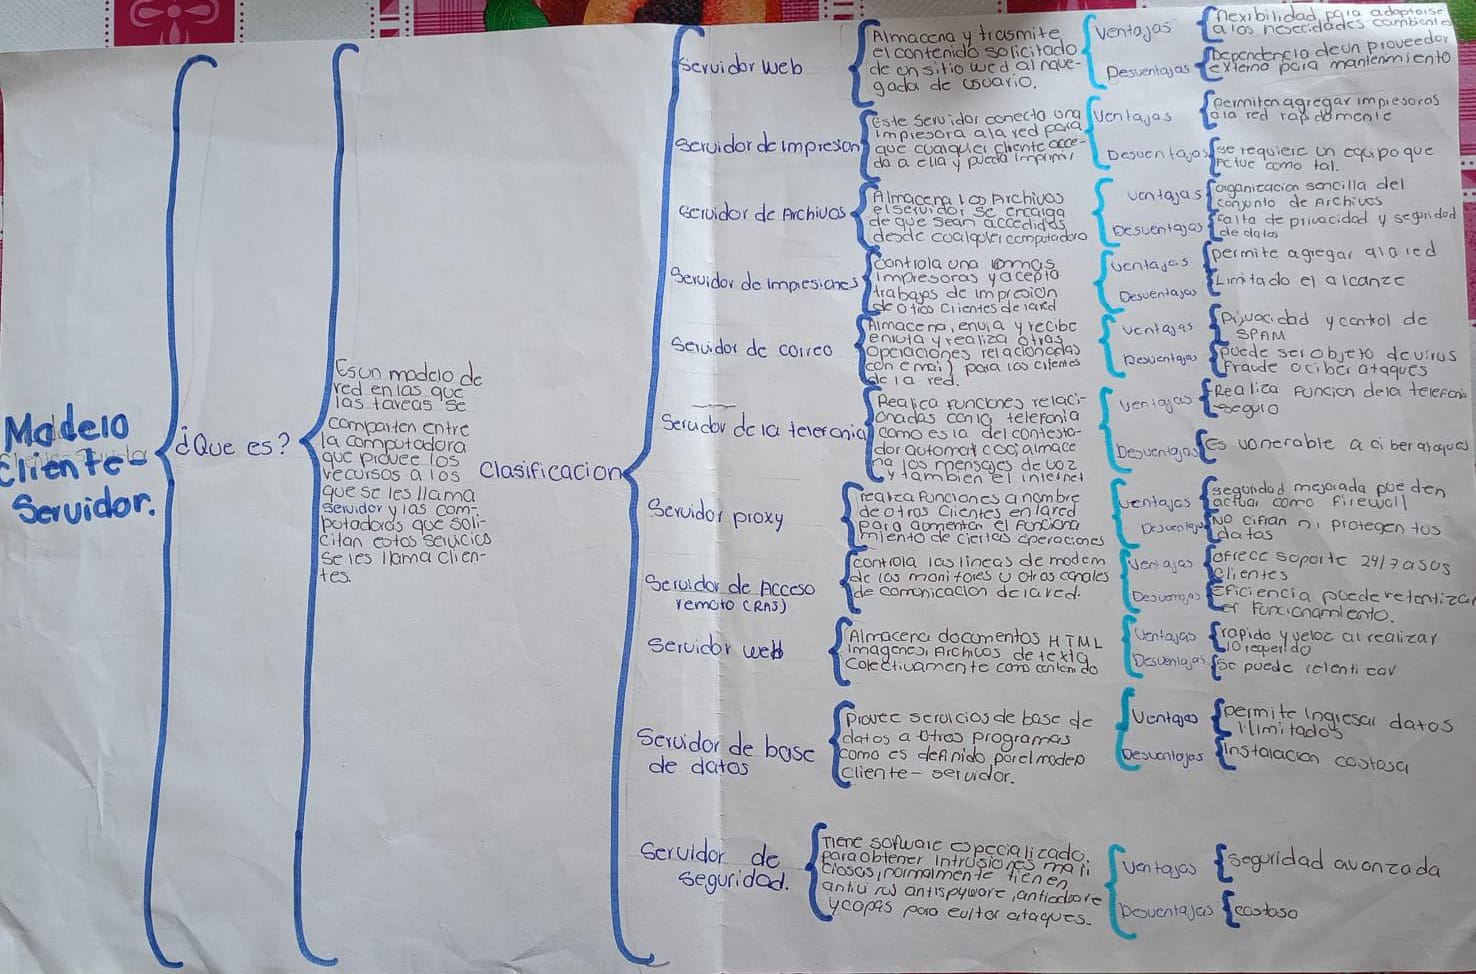 Modelo
cliente-
Servidor.
¿Que es?
Es un modelo de
red en las que
las tareas se
comparten entre
la computadora
que provee los
recursos a los
que se les llama
servidor y las com-
putadoras que soli-
citan estos servicios
se les llama clien-
tes.
Clasificacion
Servidor web
Almacena y trasmite
el contenido solicitado
de un sitio wed al nave-
gada de usuario.
Ventajas
flexibilidad para adaptarse
a los nesecidades cambiante
Desventajas
Dependencia de un proveedor
externo para mantenimiento
Servidor de impresion
Este servidor conecta una
impresora a la red para
que cualquier cliente acce-
da a ella y pueda imprimir
Ventajas
permiten agregar impresoras
a la red rapidamente
Desventajas
se requiere un equipo que
Actue como tal.
servidor de Archivos
Almacena los Archivos
el servidor se encarga
de que sean accedidas
desde cualquier computadora
ventajas
organizacion sencilla del
conjunto de Archivos
Desventajas
falta de privacidad y seguridad
de datos
Servidor de impresiones
controla una o mas
impresoras y acepta
trabajos de impresion
de otros clientes de la red
ventajas
permite agregar a la red
Desventajas
Limitado el alcanze
Servidor de correo
Almacena, envia y recibe
enruta y realiza otras
operaciones relacionadas
con email para los clientes
de la red.
ventajas
Privacidad y control de
SPAM
Desventajas
puede ser objeto de virus
fraude o ciber ataques
Servidor de la telefonia
Realica funciones relaci-
onadas con la telefonia
como es la del contesta-
dor automatico, almace
na los mensajes de voz
y tambien el internet
ventajas
Realiza funcion de la telefonia
seguro
Desventajas
es vonerable a ciberataques
Servidor proxy
realiza funciones a nombre
de otros clientes en la red
para aumentar el funciona
miento de ciertas operaciones
ventajas
seguridad mejorada pueden
actuar como firewall
Desventajas
No cifran ni protegen tus
datas
Servidor de Acceso
remoto (RAS)
controla las lineas de modem
de los monitores u otros canales
de comunicacion de la red.
Ventajas
ofrece soporte 24/7 a sus
clientes
Desventajas
Eficiencia puede
er funcionamiento.
servidor web
Almacena documentos HTML
imagenes, Archivos de texto
colectivamente como contenido
Ventajas
rapido y veloz al realizar
lo requerido
Desventajas
se puede relenti car
Servidor de base
de datos
provee servicios de base de
datos a otros programas
como es definido por el modelo
cliente-servidor.
Ventajas
permite ingresar datos
ilimitados
Desventajas
instalacion costosa
Servidor de
seguridad.
Tiene software especializado
para obtener intrusiones mali
ciosas, normalmente tienen
antivirus antispyware, antiadware
y capas para evitar ataques.
ventajas
seguridad avanzada
Desventajas
costoso